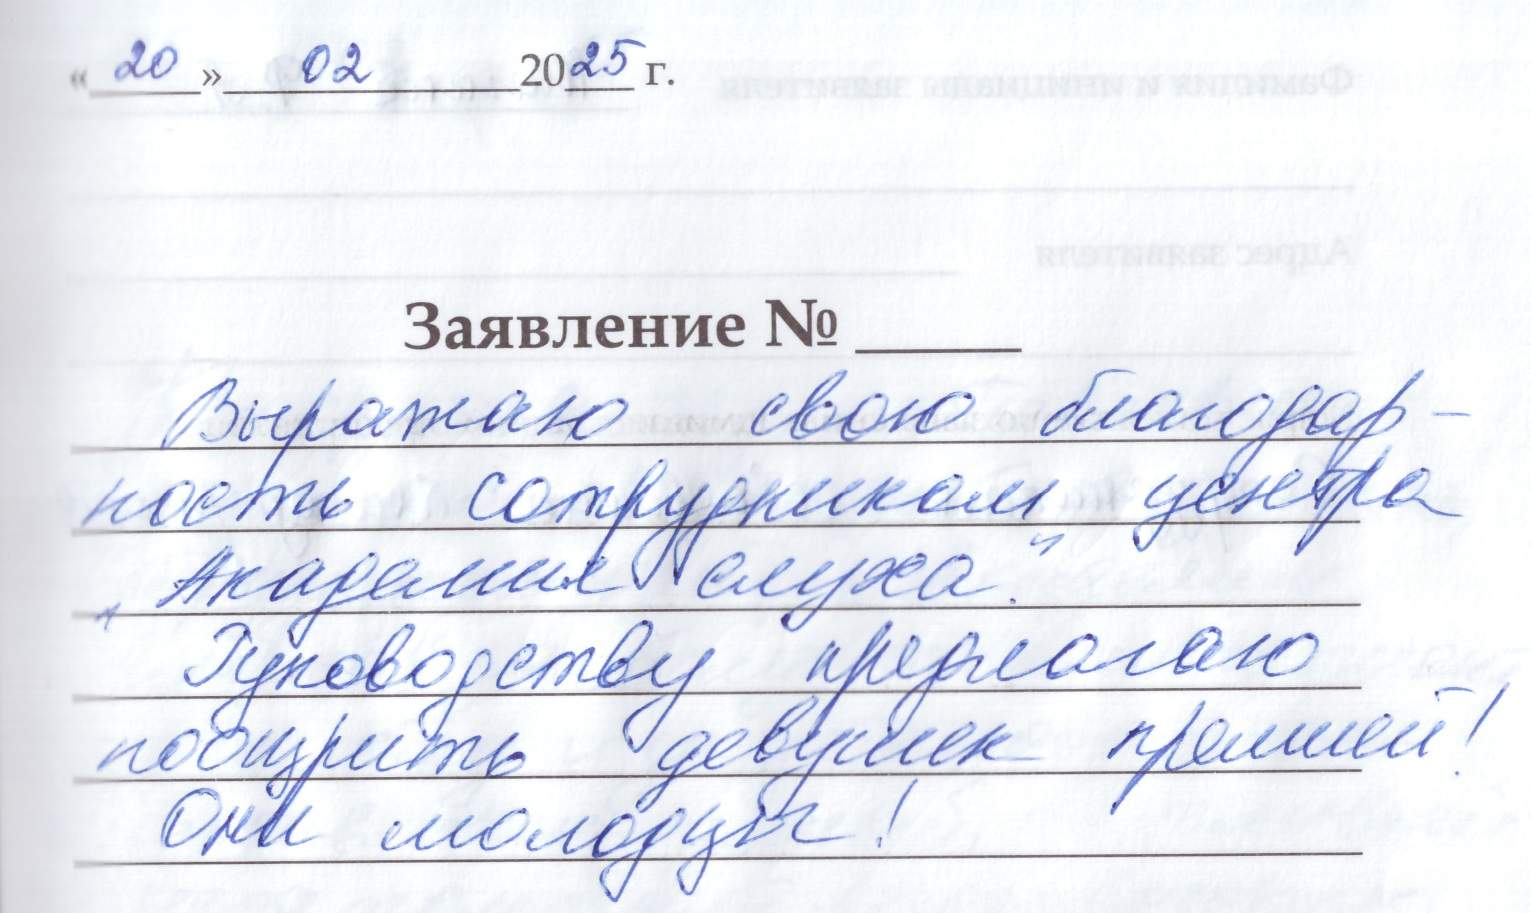 « 20 » 02 2025 г.
Заявление №
Выражаю свою благодар-
ность сотрудникам центра
„Академия слуха".
Руководству предлагаю
поощрить девушек премией!
Они молодцы!